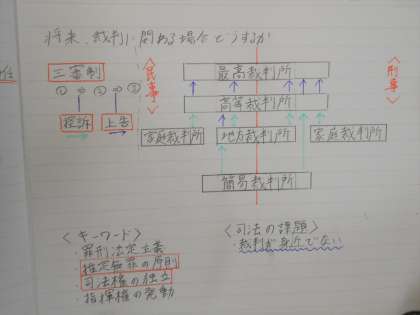 将来、裁判に関わる場合どうするか
三審制
① ⇒ ② ⇒ ③
控訴
上告
<民事>
<刑事>
最高裁判所
高等裁判所
家庭裁判所
地方裁判所
家庭裁判所
簡易裁判所
<キーワード>
・罪刑法定主義
・推定無罪の原則
・司法権の独立
・指揮権の発動
<司法の課題>
・裁判が身近でない